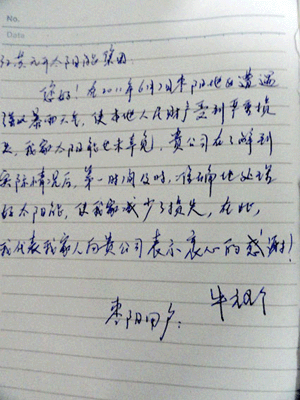 No.
Date
江苏元升太阳能集团:
您好!在2011年6月23日枣阳地区遭遇
强风暴雨天气,使本地人民财产受到严重损
失,我家太阳能也未幸免,贵公司在了解到
实际情况后,第一时间及时,准确地处理
好太阳能,使我家减少了损失,在此,
我代表我家人向贵公司表示衷心的感谢!
枣阳用户: